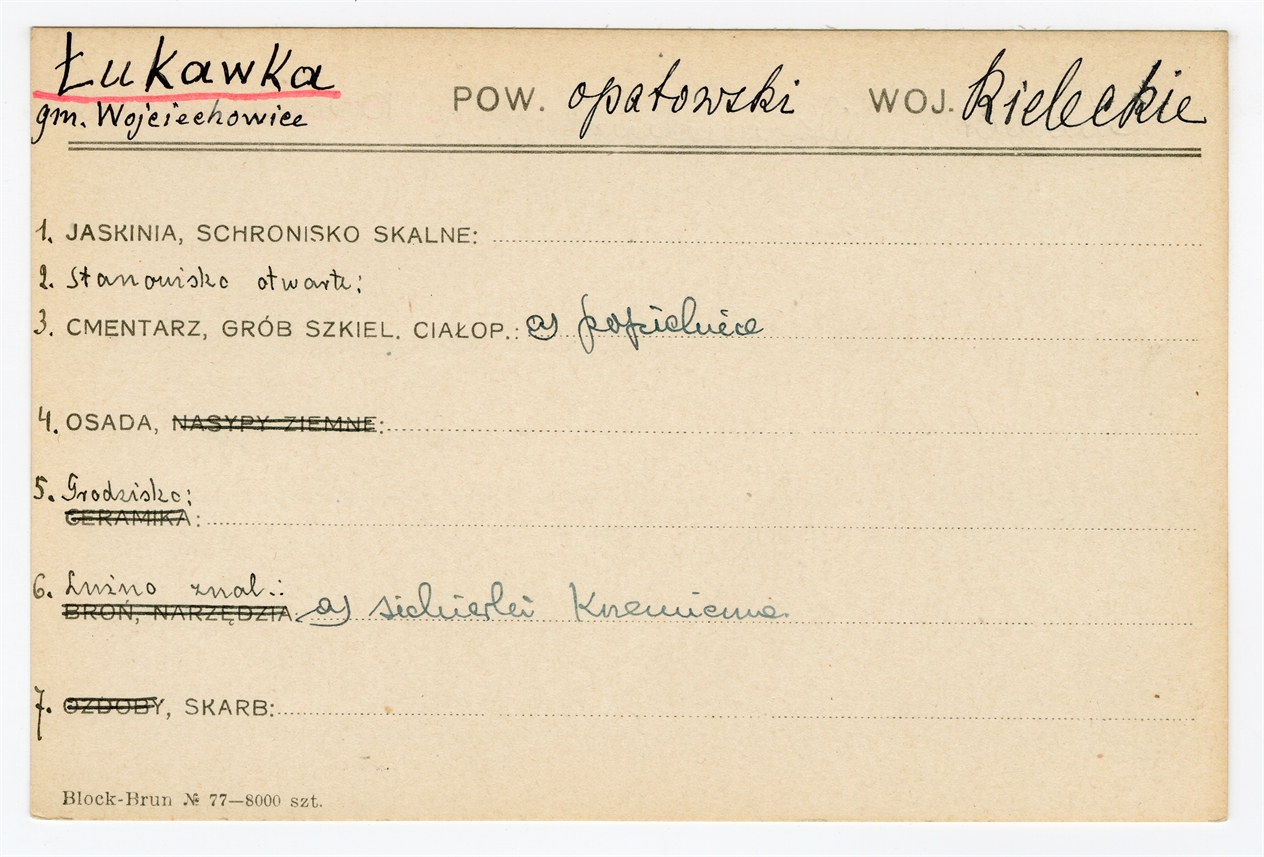 Łukawka
gm. Wojciechowice
POW. opatowski WOJ. Kieleckie
1. JASKINIA, SCHRONISKO SKALNE:
2. Stanowisko otwarte:
3. CMENTARZ, GRÓB SZKIEL. CIAŁOP.: a) popielnice
4. OSADA, NASYPY ZIEMNE:
5. Grodzisko:
CERAMIKA:
6. Luźno znal.:
BROŃ, NARZĘDZIA: a) siekierki Krzemienne
7. OZDOBY, SKARB:
Block-Brun № 77—8000 szt.